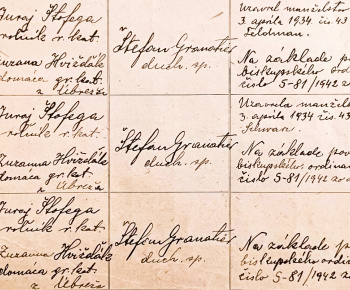 Juraj Stofega
roľník r. kat.
Zuzana Hvižďák
domáca gr. kat.
z Úbreža
Štefan Granatier
duch. sp.
Uzavrel manželstvo
3. apríla 1934 čís. 43
Feldman.
Na základe p
biskupského ordinar
číslo S-81/1942 za
Juraj Stofega
roľník r. kat.
Zuzanna Hvižďák
domáca gr. kat.
z Úbreža
Štefan Granatier
duch. sp.
Uzavrela manžels
3. apríla 1934 čís. 43
Na základe pov
biskupského ordinar
číslo S-81/1942 zo
Juraj Stofega
roľník r. kat.
Zuzanna Hvižďák
domáca gr. kat.
z Úbreža
Štefan Granatier
duch. sp.
Na základe p
biskupského ordin
číslo S-81/1942 z